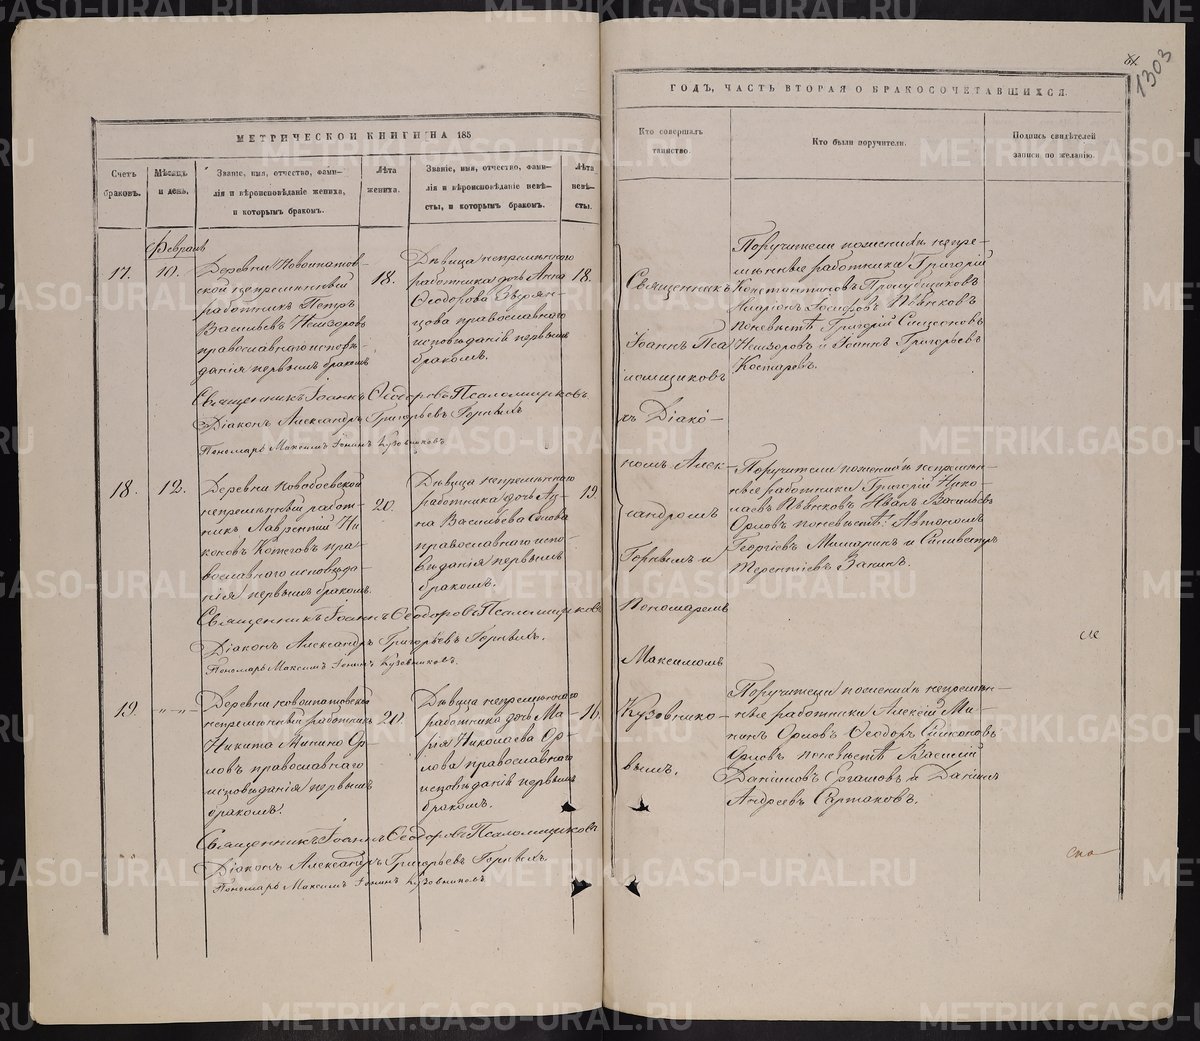 МЕТРИЧЕСКОЙ КНИГИ НА 185
Счетъ браковъ.
Мѣсяцъ и день.
Званіе, имя, отчество, фами-
лія и вѣроисповѣданіе жениха,
и которымъ бракомъ.
Лѣта жениха.
Званіе, имя, отчество, фами-
лія и вѣроисповѣданіе невѣ-
сты, и которымъ бракомъ.
Лѣта невѣ-
сты.
Февраль
17.
10.
Деревни Новоипатов-
ской непремѣнный
работникъ Петръ
Васильевъ
православнаго исповѣ-
данія первымъ бракомъ
18.
Дѣвица непремѣннаго
работника дочь Анна
Ѳеодорова
православнаго
исповѣданія первымъ
бракомъ.
18.
Священникъ Іоаннъ Ѳеодоровъ Псаломщиковъ
Діаконъ Александръ Григорьевъ Горныхъ
Пономарь Максимъ Іонинъ Кузовниковъ
18.
12.
Деревни
непремѣнный работ-
никъ Лаврентій Ни-
коновъ Котеговъ пра-
вославнаго исповѣда-
нія первымъ бракомъ.
20.
Дѣвица непремѣннаго
работника дочь Ан-
на Васильева
православнаго испо-
вѣданія первымъ
бракомъ.
19.
Священникъ Іоаннъ Ѳеодоровъ Псаломщиковъ
Діаконъ Александръ Григорьевъ Горныхъ.
Пономарь Максимъ Іонинъ Кузовниковъ.
19.
-"-"-
Деревни новоипатовской
непремѣнный работникъ
Никита Мининъ Ор-
ловъ православнаго
исповѣданія первымъ
бракомъ.
20.
Дѣвица непремѣннаго
работника дочь Ма-
рія Николаева Ор-
лова православнаго
исповѣданія первымъ
бракомъ.
16.
Священникъ Іоаннъ Ѳеодоровъ Псаломщиковъ
Діаконъ Александръ Григорьевъ Горныхъ
Пономарь Максимъ Іонинъ Кузовниковъ
81.
1303
ГОДЪ, ЧАСТЬ ВТОРАЯ О БРАКОСОЧЕТАВШИХСЯ.
Кто совершалъ
таинство.
Кто были поручители.
Подпись свидѣтелей
записи по желанію.
Священникъ
Іоаннъ Пса
ломщиковъ
съ Діако-
номъ Алек-
сандромъ
Горнымъ и
Пономаремъ
Максимомъ
Кузовнико-
вымъ.
Поручители по женихѣ непре-
мѣнные работники Григорій
Константиновъ
Иларіонъ Іосифовъ Пьянковъ
по невѣстѣ Григорій Симеоновъ
и Іоаннъ Григорьевъ
Костаревъ.
Поручители по женихѣ непремѣн-
ные работники Григорій Нико-
лаевъ Пьянковъ Иванъ Васильевъ
Орловъ по невѣстѣ: Автономъ
Георгіевъ и Сильвестръ
Терентіевъ
Поручители по женихѣ непремѣн-
ные работники Алексій Ми-
нинъ Орловъ Ѳеодоръ Симеоновъ
Орловъ по невѣстѣ Василій
Даніиловъ и Даніилъ
Андреевъ Сартаковъ.
METRIKI.GASO-URAL.RU